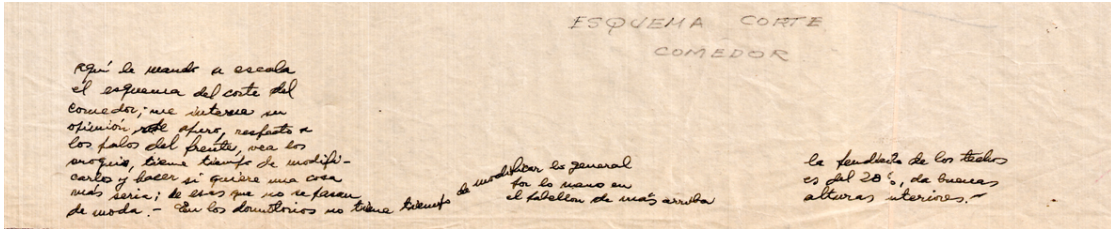 ESQUEMA CORTE
COMEDOR
Aquí le mando a escala
el esquema del corte del
comedor; me interesa su
opinión, respecto a
los palos del frente, vea los
croquis, tiene tiempo de modifi-
carlos y hacer si quiere una cosa
más seria; de esas que no se pasan
de moda.- En los dormitorios no tiene tiempo de modificar lo general
por lo menos en
el pabellon de más arriba
la pendiente de los techos
es del 20%, da buenas
alturas interiores.-